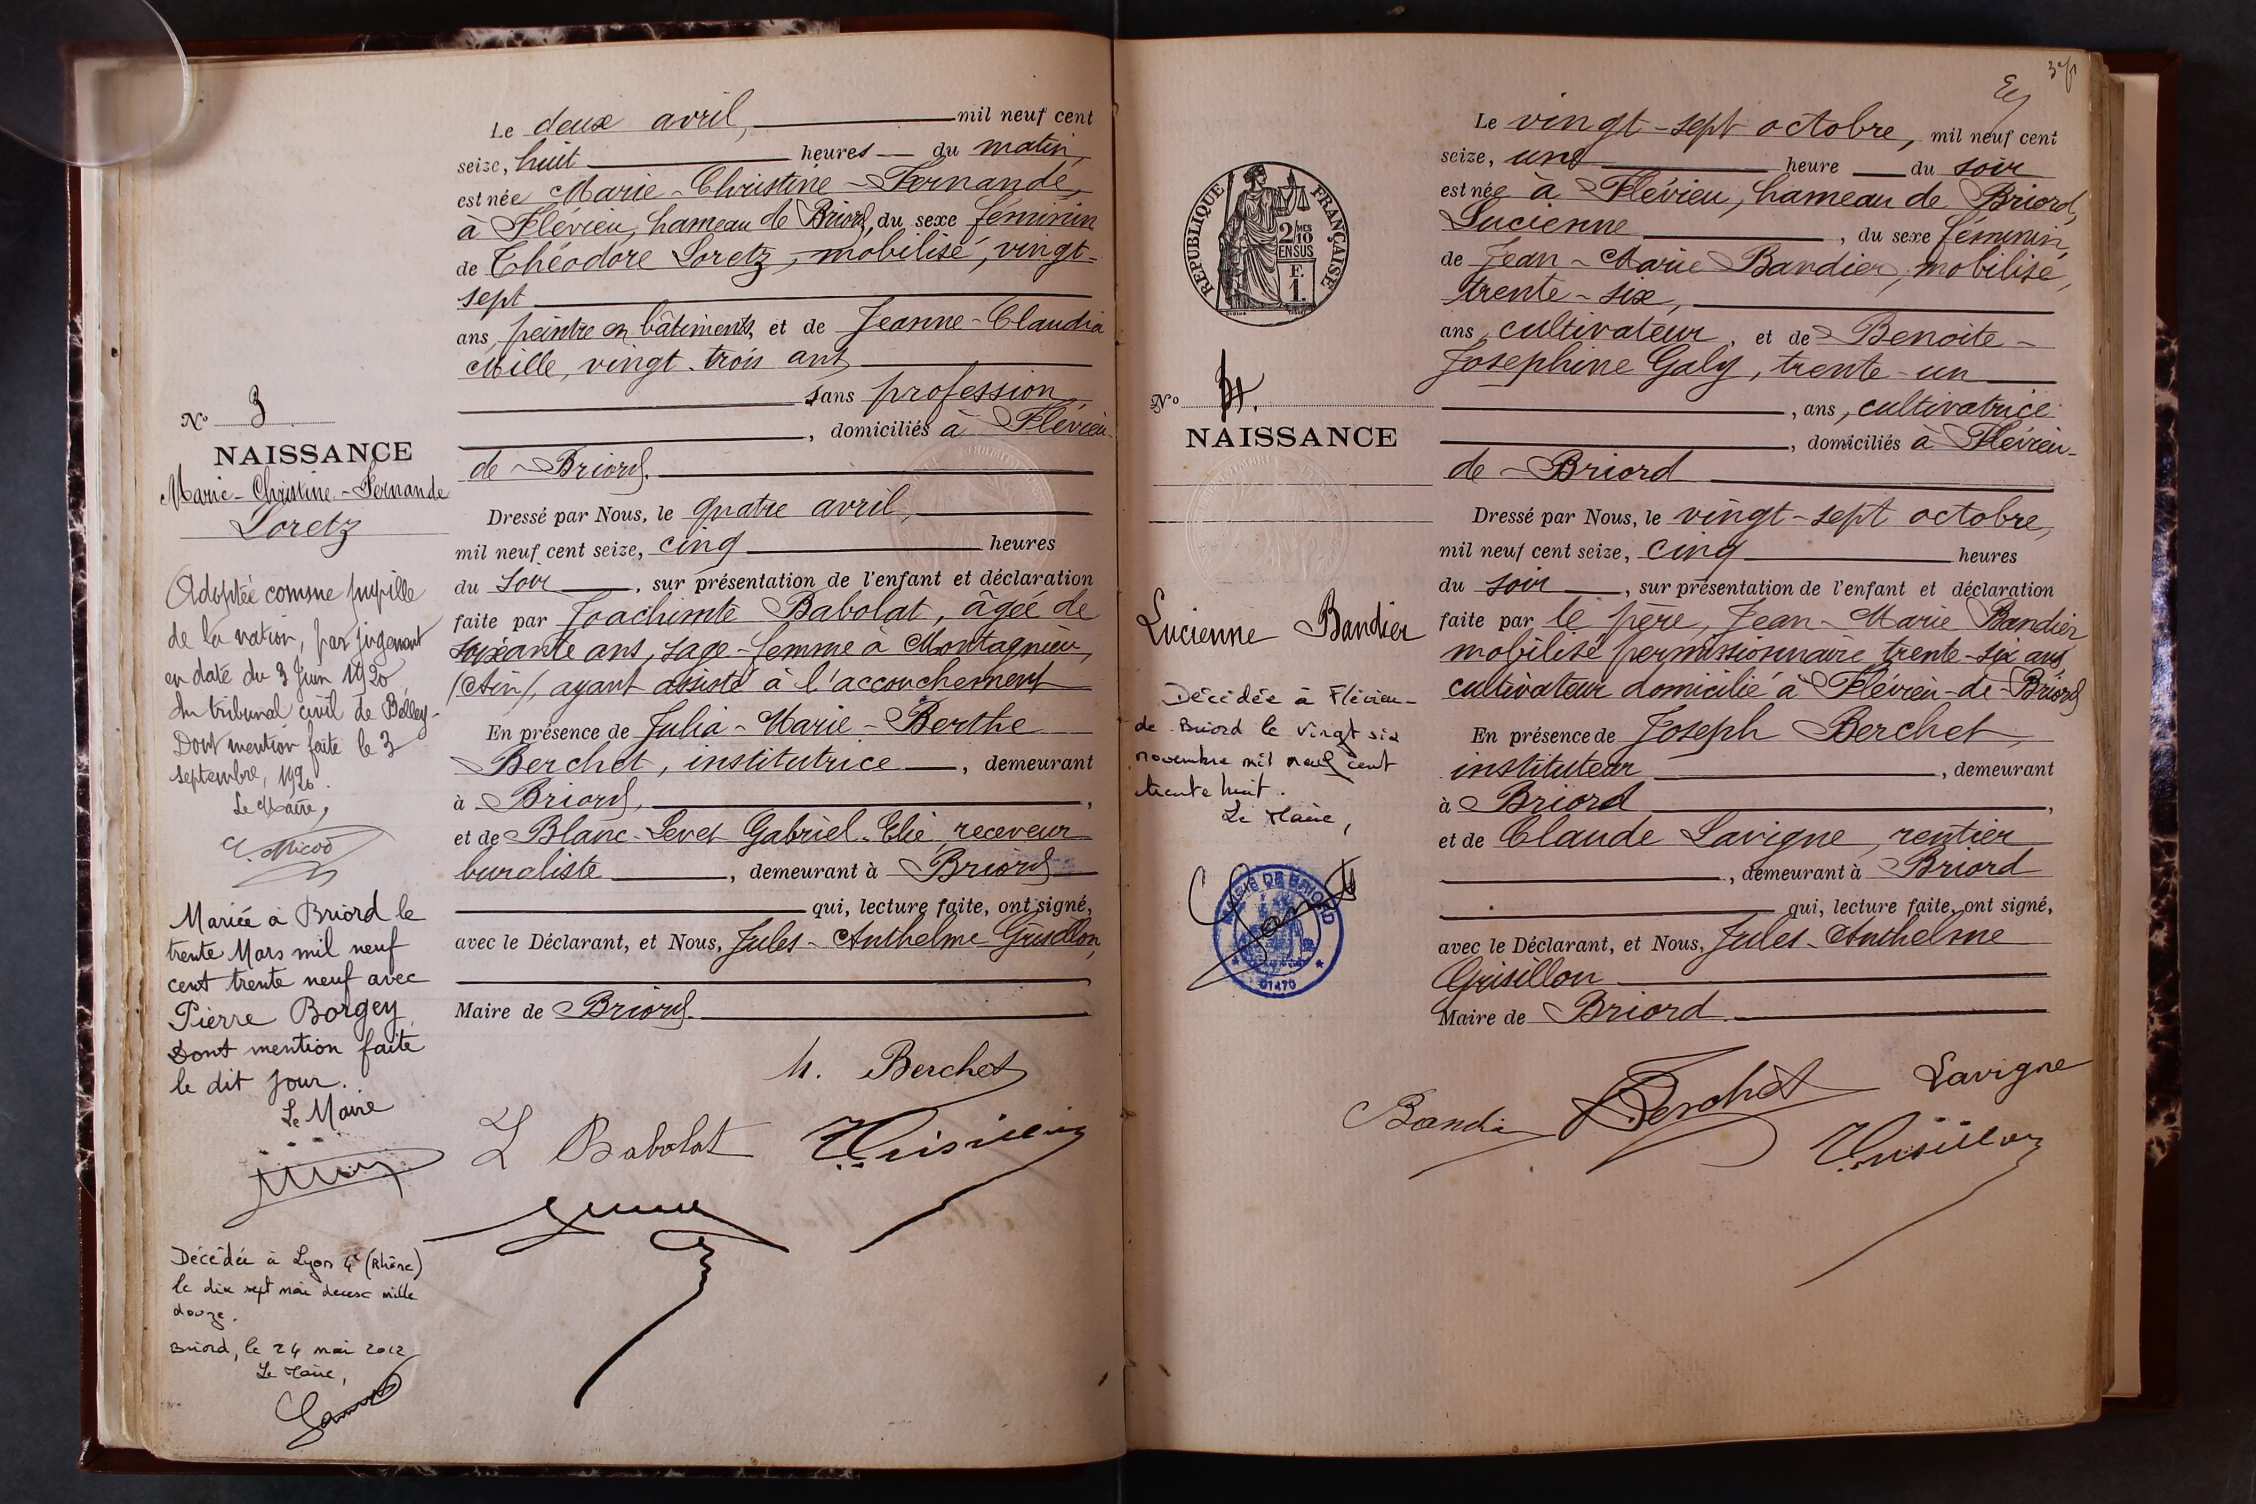 Le deux avril, mil neuf cent
seize, huit heures du matin,
est née Marie-Christine-Fernande,
à Flévieu, hameau de Briord, du sexe féminin
de Théodore Loretz, mobilisé, vingt-
sept
ans, peintre en bâtiments, et de Jeanne-Claudia
Mille, vingt-trois ans
sans profession,
, domiciliés à Flévieu-
de-Briord.
Dressé par Nous, le quatre avril,
mil neuf cent seize, cinq heures
du soir, sur présentation de l'enfant et déclaration
faite par Joachimte Babolat, âgée de
soixante ans, sage-femme à Montagnieu,
(Ain), ayant assisté à l'accouchement
En présence de Julia-Marie-Berthe
Berchet, institutrice, demeurant
à Briord,
et de Blanc-Levet Gabriel-Elie, receveur
buraliste, demeurant à Briord
qui, lecture faite, ont signé,
avec le Déclarant, et Nous, Jules-Anthelme Grisillon,
Maire de Briord.
M. Berchet
Babolat
Grisillon
No 3
NAISSANCE
Marie-Christine-Fernande
Loretz
Adoptée comme pupille
de la nation, par jugement
en date du 3 Juin 1920
du tribunal civil de Belley-
Dont mention faite le 3
septembre, 1920.
Le Maire,
Mariée à Briord le
trente Mars mil neuf
cent trente neuf avec
Pierre Borgey
Dont mention faite
le dit jour.
Le Maire
Décédée à Lyon 4e (Rhône)
le dix sept mai deux mille
douze.
Briord, le 24 mai 2012
Le Maire,
Le vingt-sept octobre, mil neuf cent
seize, une heure du soir
est née à Flévieu, hameau de Briord,
Lucienne, du sexe féminin,
de Jean-Marie Bandier, mobilisé,
trente-six,
ans, cultivateur, et de Benoite-
Josephine Galy, trente-un
, ans, cultivatrice
, domiciliés à Flévieu-
de-Briord
Dressé par Nous, le vingt-sept octobre,
mil neuf cent seize, cinq heures
du soir, sur présentation de l'enfant et déclaration
faite par le père, Jean-Marie Bandier
mobilisé permissionnaire trente-six ans
cultivateur domicilié à Flévieu-de-Briord
En présence de Joseph Berchet,
instituteur, demeurant
à Briord,
et de Claude Lavigne, rentier
, demeurant à Briord
qui, lecture faite, ont signé,
avec le Déclarant, et Nous, Jules-Anthelme
Grisillon
Maire de Briord.
Bandier
Berchet
Lavigne
Grisillon
RÉPUBLIQUE FRANÇAISE
2 MES
10
EN SUS
F.
1.
No 4.
NAISSANCE
Lucienne Bandier
Décédée à Flévieu-
de Briord le vingt six
novembre mil neuf cent
trente huit.
Le Maire,
MAIRIE DE BRIORD
01470